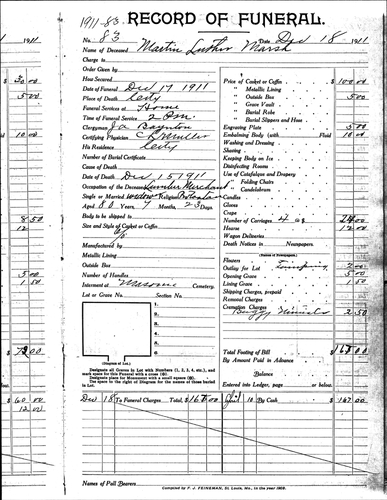 1911-83 RECORD OF FUNERAL.
1911 No. 83 Date Dec 18 1911
Name of Deceased Martin Luther Marsh
Charge to
Order Given by
How Secured
Date of Funeral Dec 17 1911
Place of Death City
Funeral Services at Home
Time of Funeral Service 2 P.M.
Clergyman J A Boynton
Certifying Physician
His Residence City
Number of Burial Certificate
Cause of Death
Date of Death Dec 15 1911
Occupation of the Deceased Lumber Merchant
Single or Married widow Religion Protestant
Aged 80 Years, 7 Months, 23 Days,
Body to be shipped to
Size and Style of Casket or Coffin
Manufactured by
Metallic Lining
Outside Box
Number of Handles
Interment at Masonic Cemetery.
Lot or Grave No. Section No.
1.
2.
3.
4.
5.
6.
(Diagram of Lot.)
Designate all Graves in Lot with Numbers (1, 2, 3, 4, etc.), and
mark space for this Funeral with a cross (+).
Designate place for Monument with a small square (□).
The space to the right of Diagram for the names of those buried
in Lot.
Price of Casket or Coffin $100.00
" Metallic Lining
" Outside Box 5.00
" Grave Vault
" Burial Robe
" Burial Slippers and Hose
Engraving Plate 5.00
Embalming Body (with Fluid) 10.00
Washing and Dressing
Shaving
Keeping Body on Ice
Disinfecting Rooms
Use of Catafalque and Drapery
" Folding Chairs
" Candelabrum
Candles
Gloves
Crape
Number of Carriages 4 @ 24.00
Hearse 12.00
Wagon Deliveries
Death Notices in Newspapers.
(Names of Newspapers)
Flowers
Outlay for Lot 2.00
Opening Grave 5.00
Lining Grave 1.50
Shipping Charges, prepaid
Removal Charges
Cremation Charges
Buggy Minister 2.50
Total Footing of Bill $167.00
By Amount Paid in Advance
Balance
Entered into Ledger, page or below.
Dec 18 To Funeral Charges Total, $167.00 10 By Cash $167.00
Names of Pall Bearers
Compiled by F. J. FEINEMAN, St. Louis, Mo., in the year 1909.
30.00
5.00
10.00
8.50
12
5.00
1.50
60.00
12.00